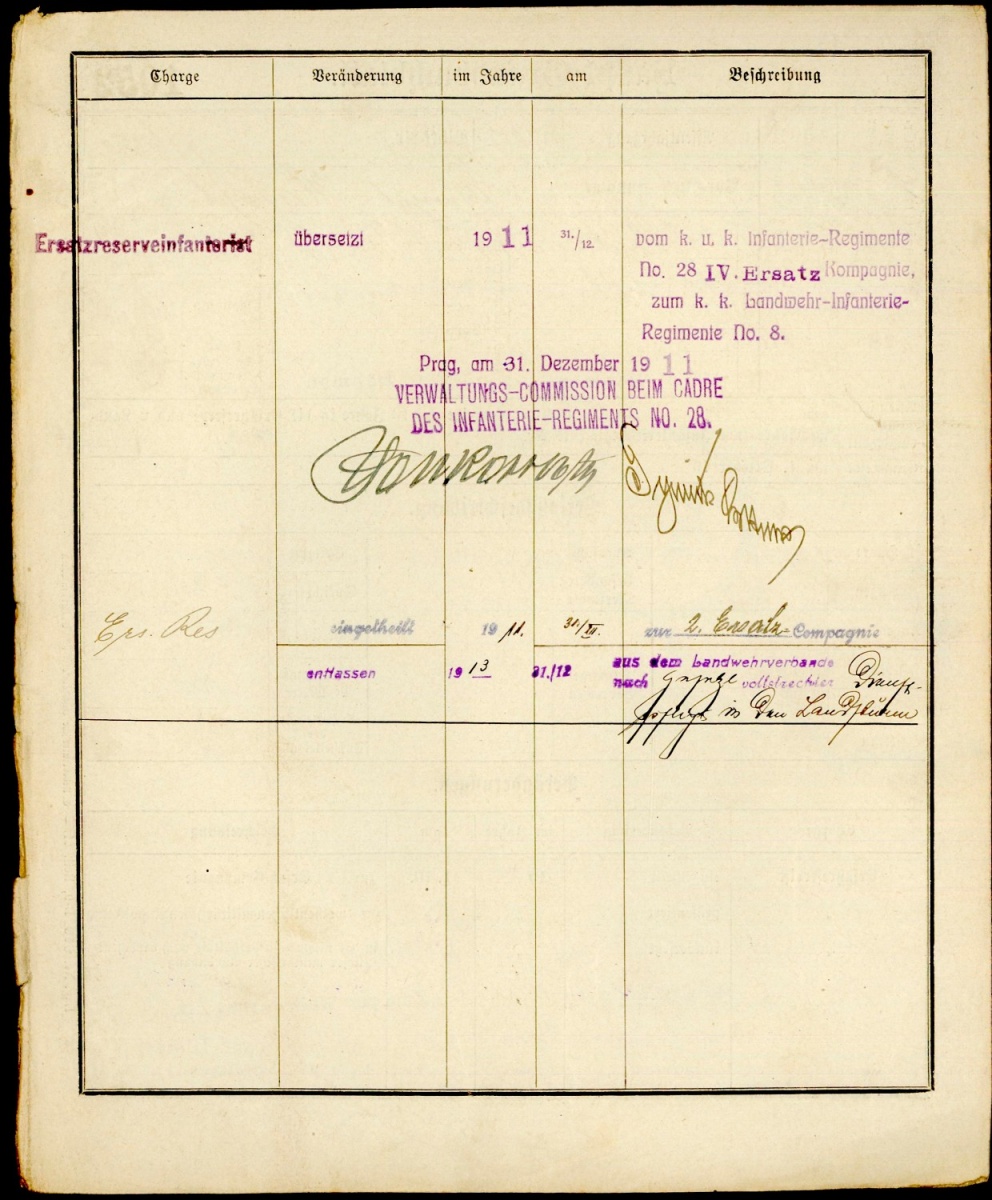 Charge Veränderung im Jahre am Beschreibung
Ersatzreserveinfanterist übersetzt 1911 31./12. vom k. u. k. Infanterie-Regimente
No. 28 IV. Ersatz Kompagnie,
zum k. k. Landwehr-Infanterie-
Regimente No. 8.
Prag, am 31. Dezember 1911
VERWALTUNGS-COMMISSION BEIM CADRE
DES INFANTERIE-REGIMENTS NO. 28.
Ers. Res eingetheilt 1911. 31./XII. zur 2. Ersatz-Compagnie
entlassen 1913 31./12 aus dem Landwehrverbande
nach vollstreckter Dienst-
pflicht in den Landsturm